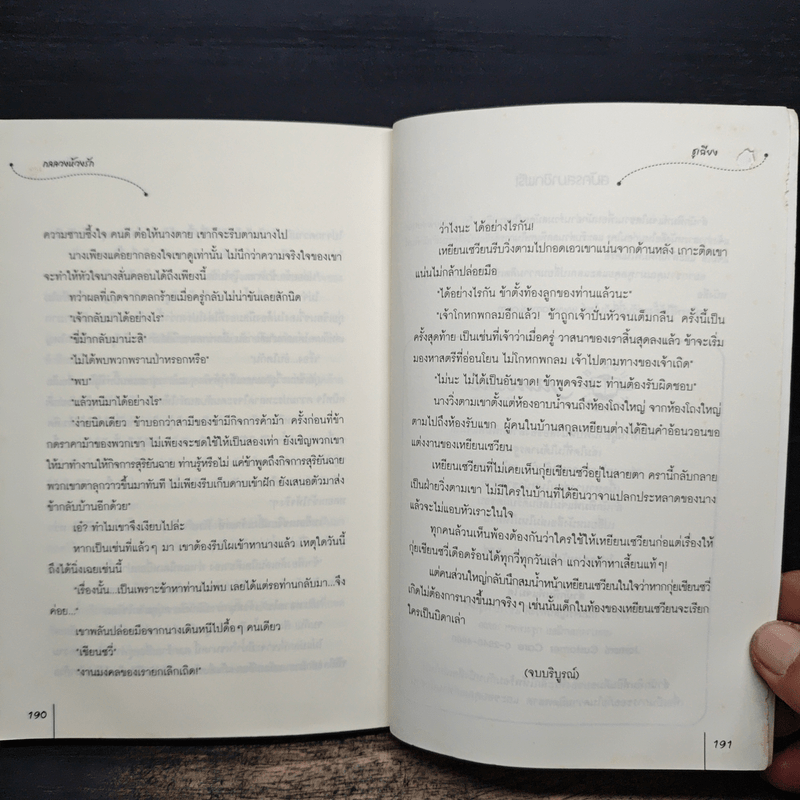 กลลวงบ่วงรัก
ความซาบซึ้งใจ คนดี ต่อให้นางตาย เขาก็จะรีบตามนางไป
นางเพียงแค่อยากลองใจเขาดูเท่านั้น ไม่นึกว่าความจริงใจของเขา
จะทำให้หัวใจนางสั่นคลอนได้ถึงเพียงนี้
ทว่าผลที่เกิดจากตลกร้ายเมื่อครู่กลับไม่น่าขันเลยสักนิด
"เจ้ากลับมาได้อย่างไร"
"ขี่ม้ากลับมาน่ะสิ"
"ไม่ได้พบพวกพรานป่าหรอกหรือ"
"พบ"
"แล้วหนีมาได้อย่างไร"
"ง่ายนิดเดียว ข้าบอกว่าสามีของข้ามีกิจการค้าม้า ครั้งก่อนที่ข้า
กดราคาม้าของพวกเขา ไม่เพียงจะชดใช้ให้เป็นสองเท่า ยังเชิญพวกเขา
ให้มาทำงานให้กิจการสุริยันฉาย ท่านรู้หรือไม่ แค่ข้าพูดถึงกิจการสุริยันฉาย
พวกเขาตาลุกวาวขึ้นมาทันที ไม่เพียงรีบเก็บดาบเข้าฝัก ยังเสนอตัวมาส่ง
ข้ากลับบ้านอีกด้วย"
เอ๋? ทำไมเขาจึงเงียบไปล่ะ
หากเป็นเช่นที่แล้วๆ มา เขาต้องรีบโผเข้าหานางแล้ว เหตุใดวันนี้
ถึงได้นิ่งเฉยเช่นนี้
"เรื่องนั้น...เป็นเพราะข้าหาท่านไม่พบ เลยได้แต่รอท่านกลับมา...จึง
ค่อย..."
เขาพลันปล่อยมือจากนางเดินหนีไปดื้อๆ คนเดียว
"เชียนซวี่"
"งานมงคลของเรายกเลิกเถิด!"
190
ฐูเฉียง
ว่าไงนะ ได้อย่างไรกัน!
เหยียนเซวียนรีบวิ่งตามไปกอดเอวเขาแน่นจากด้านหลัง เกาะติดเขา
แน่นไม่กล้าปล่อยมือ
"ได้อย่างไรกัน ข้าตั้งท้องลูกของท่านแล้วนะ"
"เจ้าโกหกพกลมอีกแล้ว! ข้าถูกเจ้าปั่นหัวจนเต็มกลืน ครั้งนี้เป็น
ครั้งสุดท้าย เป็นเช่นที่เจ้าว่าเมื่อครู่ วาสนาของเราสิ้นสุดลงแล้ว ข้าจะเริ่ม
มองหาสตรีที่อ่อนโยน ไม่โกหกพกลม เจ้าไปตามทางของเจ้าเถิด"
"ไม่นะ ไม่ได้เป็นอันขาด! ข้าพูดจริงนะ ท่านต้องรับผิดชอบ"
นางวิ่งตามเขาตั้งแต่ห้องอาบน้ำจนถึงห้องโถงใหญ่ จากห้องโถงใหญ่
ตามไปถึงห้องรับแขก ผู้คนในบ้านสกุลเหยียนต่างได้ยินคำอ้อนวอนขอ
แต่งงานของเหยียนเซวียน
เหยียนเซวียนที่ไม่เคยเห็นกุ่ยเชียนซวี่อยู่ในสายตา ครานี้กลับกลาย
เป็นฝ่ายวิ่งตามเขา ไม่มีใครในบ้านที่ได้ยินวาจาแปลกประหลาดของนาง
แล้วจะไม่แอบหัวเราะในใจ
ทุกคนล้วนเห็นพ้องต้องกันว่าใครใช้ให้เหยียนเซวียนก่อแต่เรื่องให้
กุ่ยเชียนซวี่เดือดร้อนได้ทุกวี่ทุกวันเล่า แกว่งเท้าหาเสี้ยนแท้ๆ!
แต่คนส่วนใหญ่กลับนึกสมน้ำหน้าเหยียนเซวียนในใจว่าหากกุ่ยเชียนซวี่
เกิดไม่ต้องการนางขึ้นมาจริงๆ เช่นนั้นเด็กในท้องของเหยียนเซวียนจะเรียก
ใครเป็นบิดาเล่า
(จบบริบูรณ์)
191